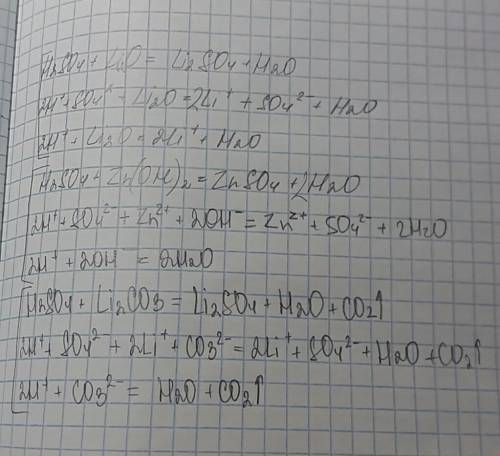 H2SO4 + Li2O = Li2SO4 + H2O
2H⁺ + SO4²⁻ + Li2O = 2Li⁺ + SO4²⁻ + H2O
2H⁺ + Li2O = 2Li⁺ + H2O
H2SO4 + Zn(OH)2 = ZnSO4 + 2H2O
2H⁺ + SO4²⁻ + Zn²⁺ + 2OH⁻ = Zn²⁺ + SO4²⁻ + 2H2O
2H⁺ + 2OH⁻ = 2H2O
H2SO4 + Li2CO3 = Li2SO4 + H2O + CO2↑
2H⁺ + SO4²⁻ + 2Li⁺ + CO3²⁻ = 2Li⁺ + SO4²⁻ + H2O + CO2↑
2H⁺ + CO3²⁻ = H2O + CO2↑